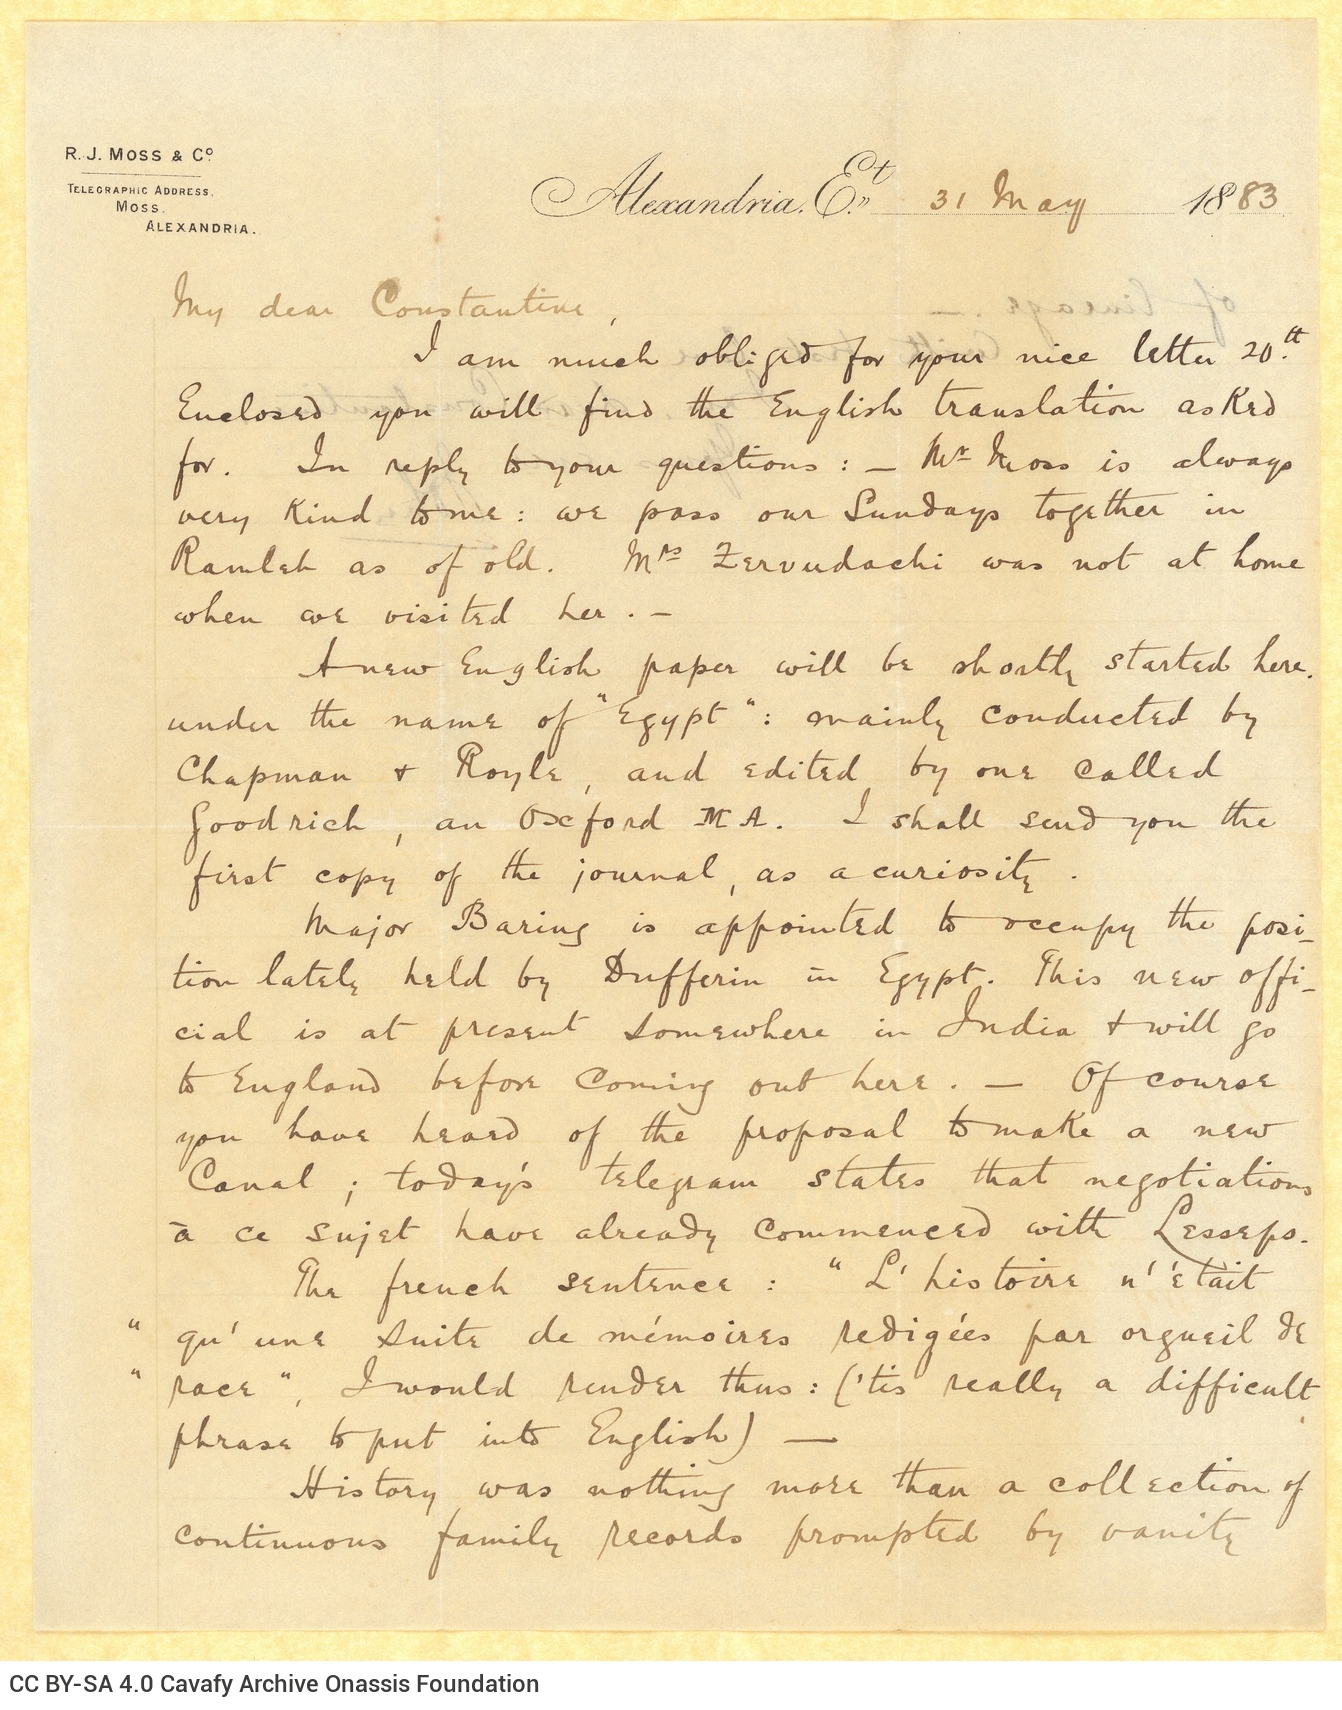 R. J. MOSS & Cº
TELEGRAPHIC ADDRESS.
MOSS.
ALEXANDRIA.
Alexandria. E.t 31 May 1883
My dear Constantine,
I am much obliged for your nice letter 20.tt
Enclosed you will find the English translation asked
for. In reply to your questions: — Mr Moss is always
very kind to me: we pass our Sundays together in
Ramleh as of old. Mrs Zervudachi was not at home
when we visited her. —
A new English paper will be shortly started here,
under the name of "Egypt": mainly conducted by
Chapman & Royle, and edited by one called
Goodrich, an Oxford MA. I shall send you the
first copy of the journal, as a curiosity.
Major Baring is appointed to occupy the posi-
tion lately held by Dufferin in Egypt. This new offi-
cial is at present somewhere in India & will go
to England before coming out here. — Of course
you have heard of the proposal to make a new
Canal; today's telegram states that negotiations
à ce sujet have already commenced with Lesseps.
The french sentence: "L'histoire n'était
" qu'une suite de mémoires redigées par orgueil de
" race", I would render thus: ('tis really a difficult
phrase to put into English) —
History was nothing more than a collection of
continuous family records prompted by vanity
of lineage. —
CC BY-SA 4.0 Cavafy Archive Onassis Foundation